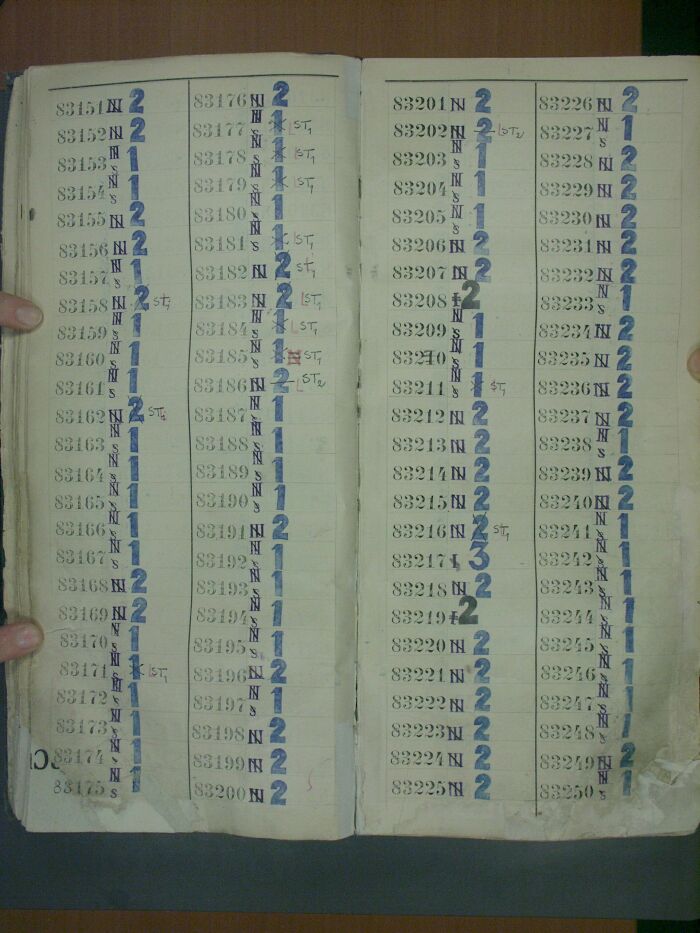 83151 N 2
83152 N 2
83153 N s 1
83154 N s 1
83155 N 2
83156 N 2
83157 N s 1
83158 N 2 ST1
83159 N s 1
83160 N s 1
83161 N s 1
83162 N 2
83163 N s 1
83164 N s 1
83165 N s 1
83166 N s 1
83167 N s 1
83168 N 2
83169 N 2
83170 N s 1
83171 N s 1 ST1
83172 N s 1
83173 N s 1
83174 N s 1
83175 N s 1
83176 N 2
83177 N s 1 ST1
83178 N s 1 ST1
83179 N s 1 ST1
83180 N s 1
83181 N s 1 ST1
83182 N 2 ST1
83183 N 2 ST1
83184 N s 1 ST1
83185 N s 1 N ST1
83186 N 2 ST2
83187 N s 1
83188 N s 1
83189 N s 1
83190 N s 1
83191 N 2
83192 N s 1
83193 N s 1
83194 N s 1
83195 N s 1
83196 N 2
83197 N s 1
83198 N 2
83199 N 2
83200 N 2
83201 N 2
83202 N 2 ST2
83203 N s 1
83204 N s 1
83205 N s 1
83206 N 2
83207 N 2
83208 I 2
83209 N s 1
83210 N s 1
83211 N s 1 ST1
83212 N 2
83213 N 2
83214 N 2
83215 N 2
83216 N 2 ST1
83217 I s 3
83218 N 2
83219 I 2
83220 N 2
83221 N 2
83222 N 2
83223 N 2
83224 N 2
83225 N 2
83226 N 2
83227 N s 1
83228 N 2
83229 N 2
83230 N 2
83231 N 2
83232 N 2
83233 N s 1
83234 N 2
83235 N 2
83236 N 2
83237 N 2
83238 N s 1
83239 N 2
83240 N 2
83241 N s 1
83242 N s 1
83243 N s 1
83244 N s 1
83245 N s 1
83246 N s 1
83247 N s 1
83248 N s 1
83249 N 2
83250 N s 1